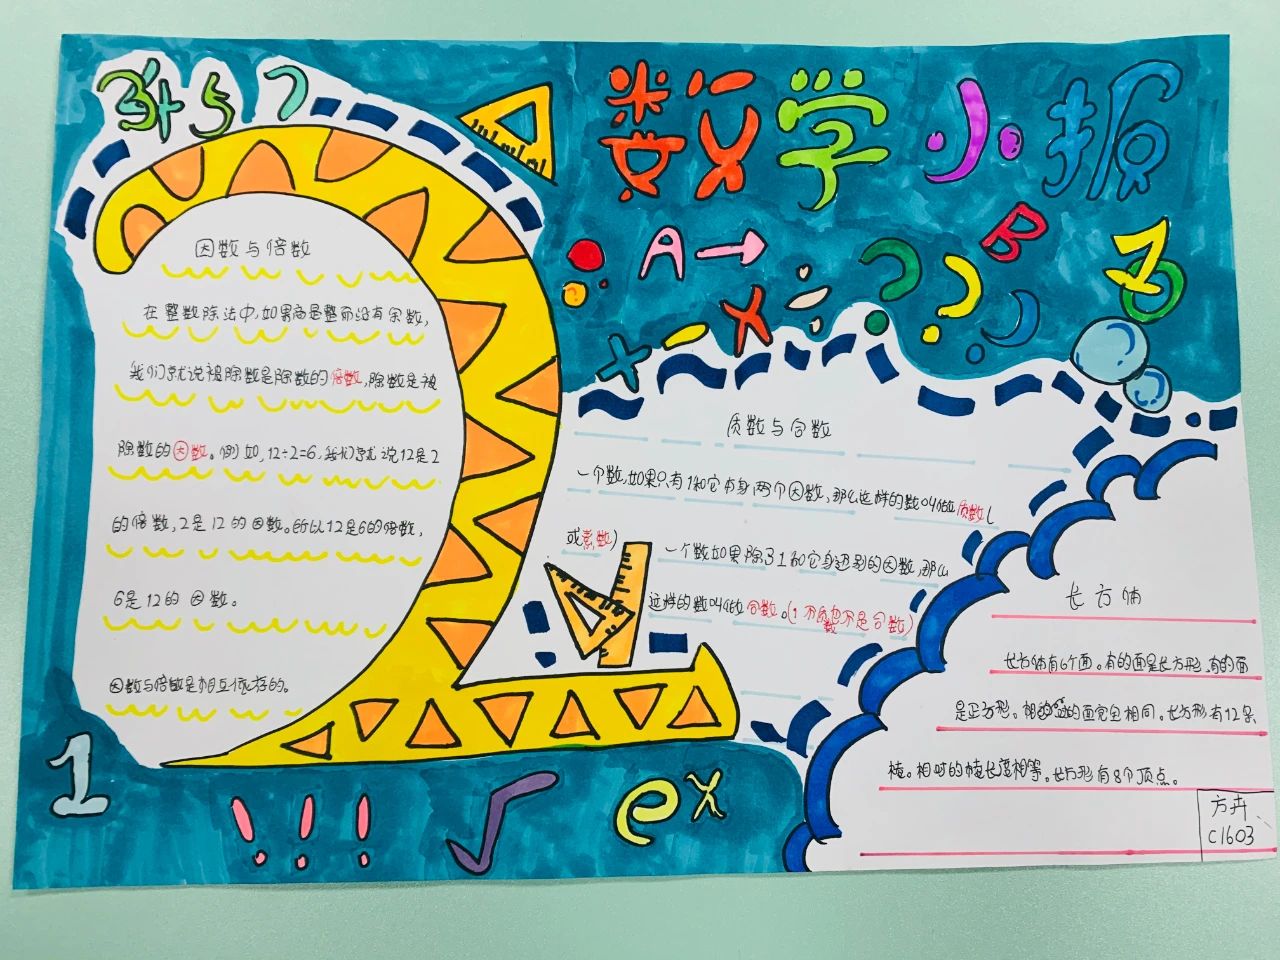 数学小报
3+57
A→
B
+ - × ÷
???
因数与倍数
在整数除法中,如果商是整而没有余数,
我们就说被除数是除数的倍数,除数是被
除数的因数。例如,12÷2=6,我们就说12是2
的倍数,2是12的因数。所以12是6的倍数,
6是12的因数。
因数与倍数是相互依存的。
质数与合数
一个数,如果只有1和它本身两个因数,那么这样的数叫做质数(
或素数)
一个数如果除了1和它身还别的因数,那么
这样的数叫做合数。(1不质数也不是合数)
长方体
长方体有6个面。有的面是长方形,有的面
是正方形。相的面完全相同。长方形有12条
棱。相对的棱长度相等。长方形有8个顶点。
1
!!!
√
eˣ
方卉
C1603